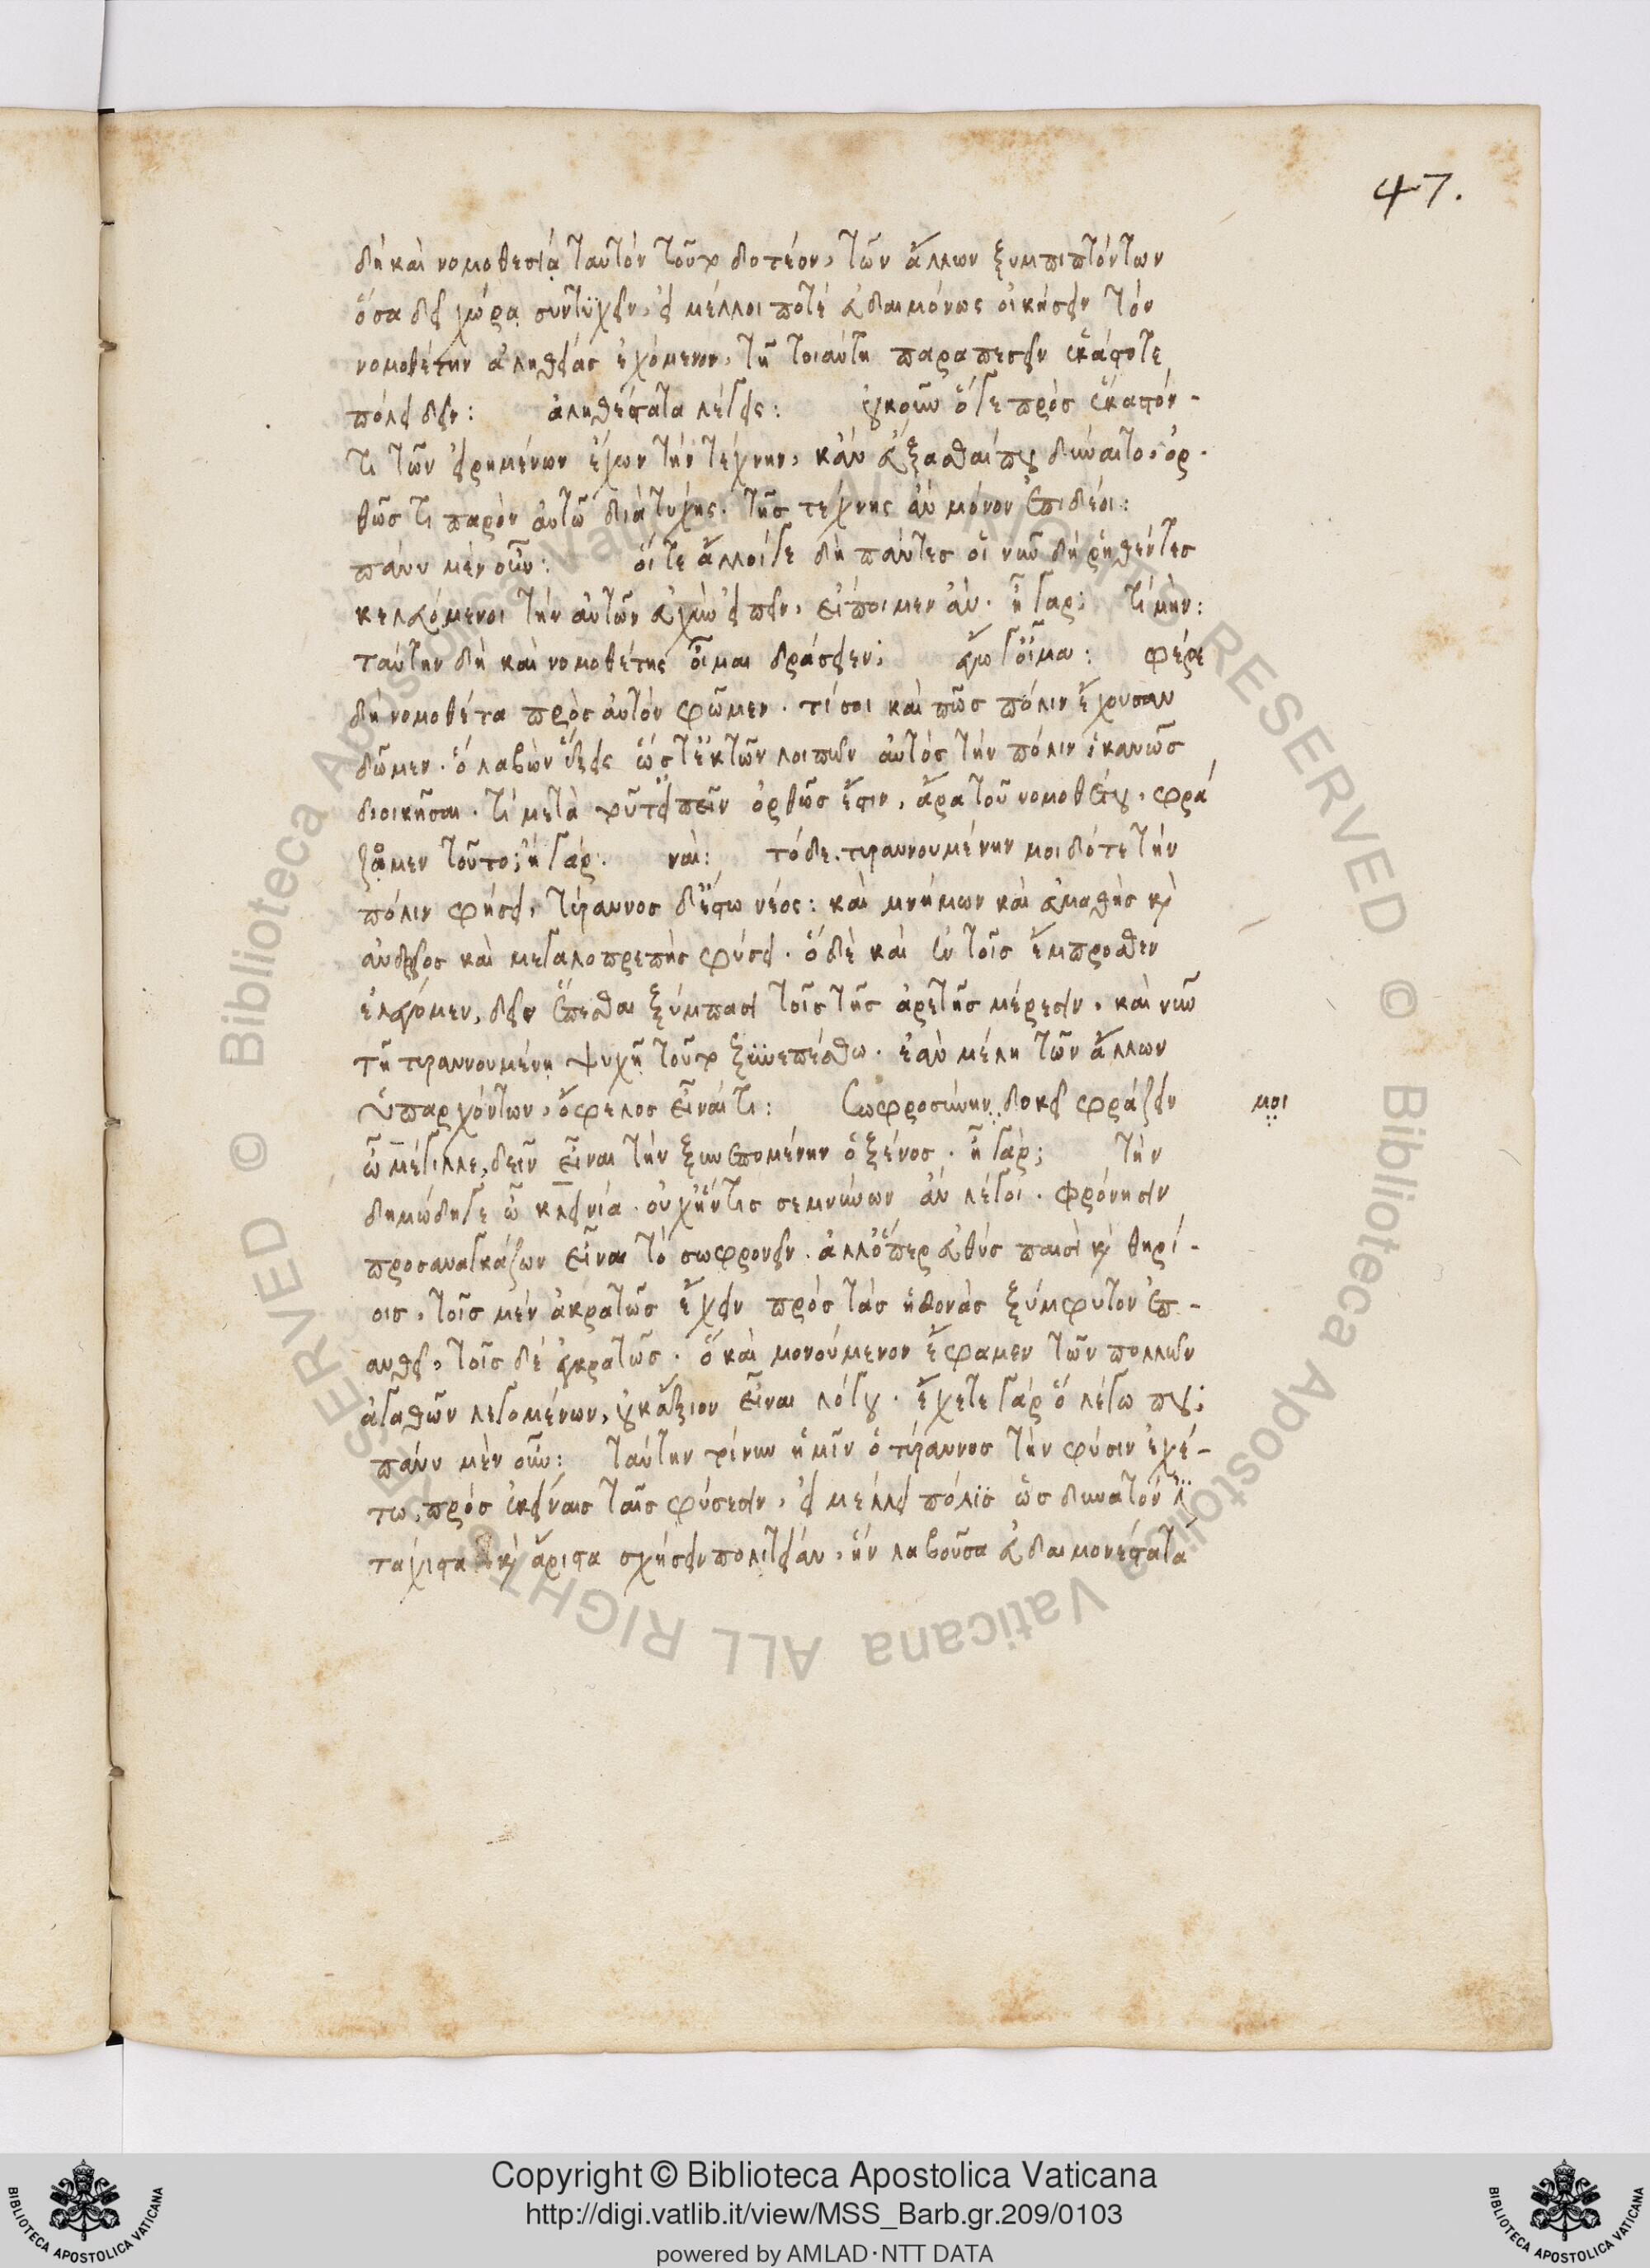 47.
δὴ καὶ νομοθεσίᾳ ταυτὸν τοῦτο δοτέον, τῶν ἄλλων ξυμπιπτόντων
ὅσα δεῖ χώρᾳ συντυχεῖν, εἰ μέλλοι ποτὲ εὐδαιμόνως οἰκήσειν τὸν
νομοθέτην ἀληθείας ἐχόμενον, τῇ τοιαύτῃ παραπεσεῖν ἑκάστοτε
πόλει δεῖν: ἀληθέστατα λέγεις: οὐκοῦν ὅ γε πρὸς ἕκαστόν -
τι τῶν εἰρημένων ἔχων τὴν τέχνην, κἂν εὔξασθαί που δύναιτο, ὀρ-
θῶς τί παρὸν αὐτῷ διὰ τύχης. τῆς τέχνης ἂν μόνον ἐπιδέοι:
πάνυ μὲν οὖν: οἵ τε ἄλλοί γε δὴ πάντες οἱ νῦν δὴ ῥηθέντες
κελευόμενοι τὴν αὐτῶν εὐχὴν εἰπεῖν, εἴποιμεν ἄν. ἦ γάρ; τί μήν:
ταύτην δὴ καὶ νομοθέτης οἶμαι δράσειεν; ἔγωγ οἶμαι: φέρε
δὴ νομοθέτα πρὸς αὐτὸν φῶμεν. τί σοι καὶ πῶς πόλιν ἔχουσαν
δῶμεν. ὃ λαβὼν ἕξεις ὥστ ἐκ τῶν λοιπῶν αὐτὸς τὴν πόλιν ἱκανῶς
διοικῆσαι. τί μετὰ τοῦτ εἰπεῖν ὀρθῶς ἔστιν, ἆρα τοῦ νομοθέτου, φρά
ζωμεν τοῦτο; ἦ γάρ. ναί: τόδε. τυραννουμένην μοι δότε τὴν
πόλιν φήσει, τύραννος δ ἔστω νέος: καὶ μνήμων καὶ εὐμαθὴς καὶ
ἀνδρεῖος καὶ μεγαλοπρεπὴς φύσει. ὃ δὲ καὶ ἐν τοῖς ἔμπροσθεν
ἐλέγομεν, δεῖν ἕπεσθαι ξύμπασι τοῖς τῆς ἀρετῆς μέρεσιν, καὶ νῦν
τῇ τυραννουμένῃ ψυχῇ τοῦτο ξυνεπέσθω. ἐὰν μέλῃ τῶν ἄλλων
ὑπαρχόντων, ὄφελος εἶναί τι: Σωφροσύνην δοκεῖ φράζειν
μοι
ὦ μέγιλλε, δεῖν εἶναι τὴν ξυνεπομένην ὁ ξένος. ἦ γάρ; τὴν
δημώδη γε ὦ κλεινία. οὐχ ἥν τις σεμνύνων ἂν λέγοι. φρόνησιν
προσαναγκάζων εἶναι τὸ σωφρονεῖν. ἀλλ ὅπερ εὐθὺς παισὶ καὶ θηρί -
οις, τοῖς μὲν ἀκρατῶς ἔχειν πρὸς τὰς ἡδονὰς ξύμφυτον ἐπ -
ανθεῖ, τοῖς δὲ ἐγκρατῶς. ὃ καὶ μονούμενον ἔφαμεν τῶν πολλῶν
ἀγαθῶν λεγομένων, οὐκ ἄξιον εἶναι λόγου. ἔχετε γὰρ ὃ λέγω που;
πάνυ μὲν οὖν: ταύτην τοίνυν ἡμῖν ὁ τύραννος τὴν φύσιν ἐχέ -
τω. πρὸς ἐκείναις ταῖς φύσεσιν, εἰ μέλλει πόλις ὡς δυνατόν ἐστι
τάχιστα καὶ ἄριστα σχήσειν πολιτείαν, ἣν λαβοῦσα εὐδαιμονέστατα
Copyright © Biblioteca Apostolica Vaticana
http://digi.vatlib.it/view/MSS_Barb.gr.209/0103
powered by AMLAD·NTT DATA